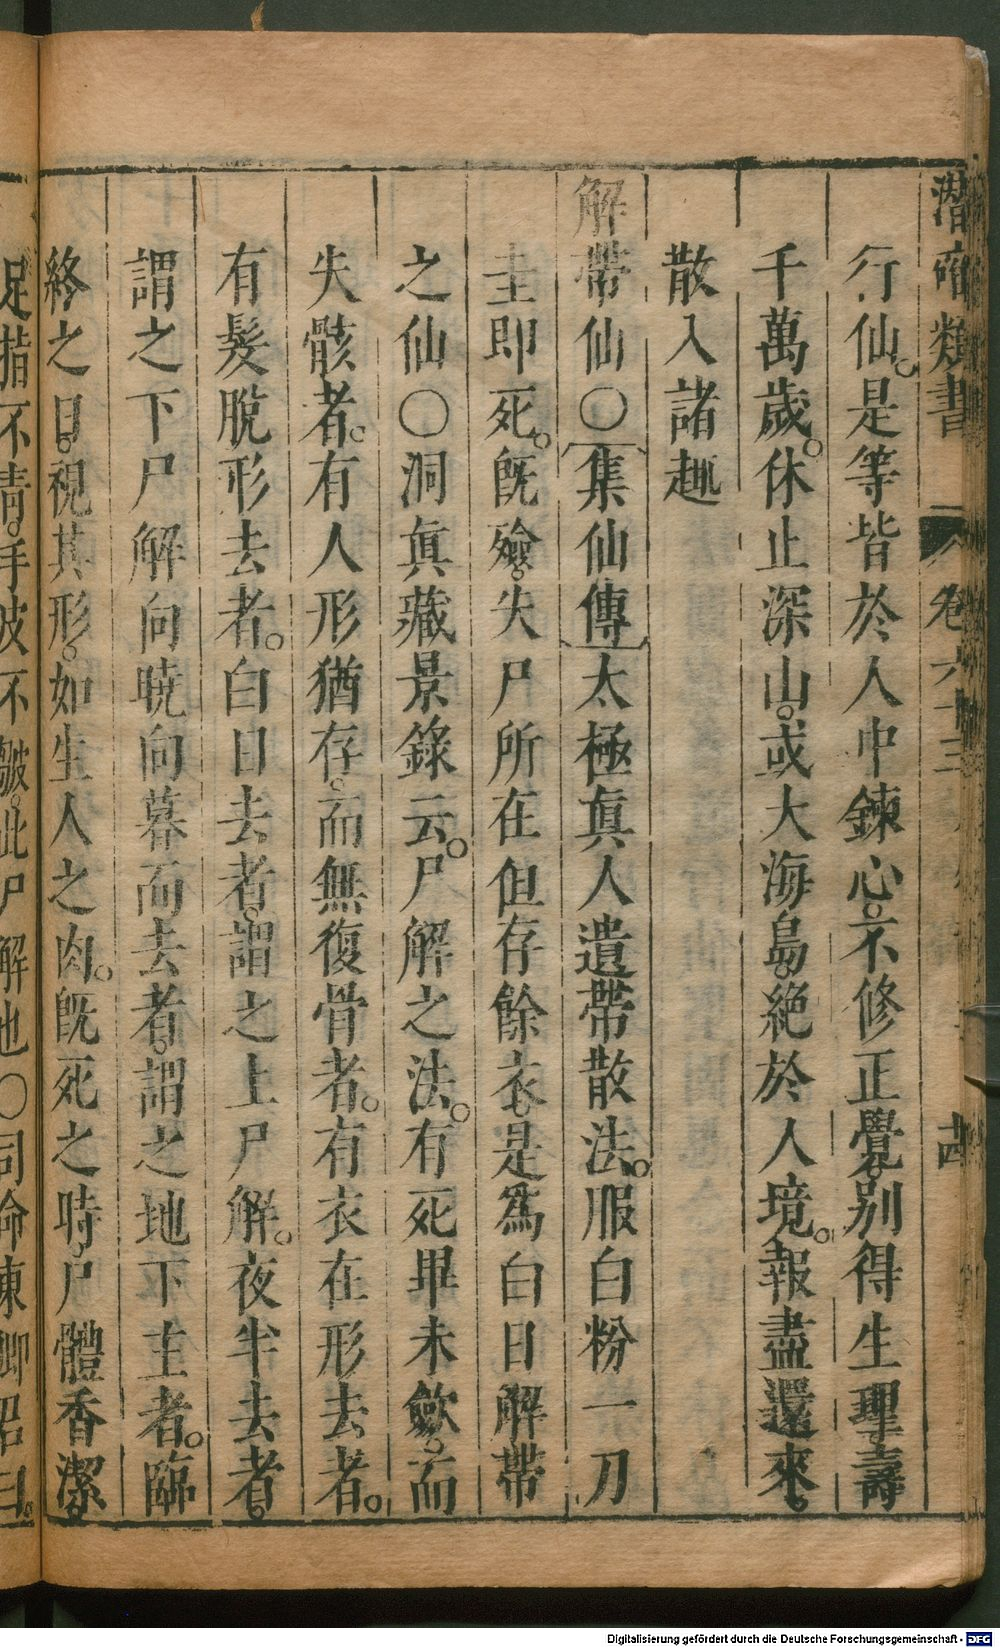 潛確類書
卷六十三
行仙。是等皆於人中鍊心。不修正覺。別得生理。壽
千萬歲。休止深山。或大海島。絶於人境。報盡還來。
散入諸趣
解帶仙○集仙傳太極眞人遺帶散法。服白粉一刀
圭即死。旣殮。失尸所在但存餘衣。是爲白日解帶
之仙○洞眞藏景錄云。尸解之法。有死畢未歛。而
失骸者。有人形猶存。而無復骨者。有衣在形去者。
有髮脫形去者。白日去者。謂之上尸解。夜半去者。
謂之下尸解向曉向暮而去者。謂之地下主者。臨
終之日。視其形。如生人之肉。旣死之時。尸體香潔。
足指不靑。手皮不皺。此尸解也○司命東卿君曰。
Digitalisierung gefördert durch die Deutsche Forschungsgemeinschaft - DFG